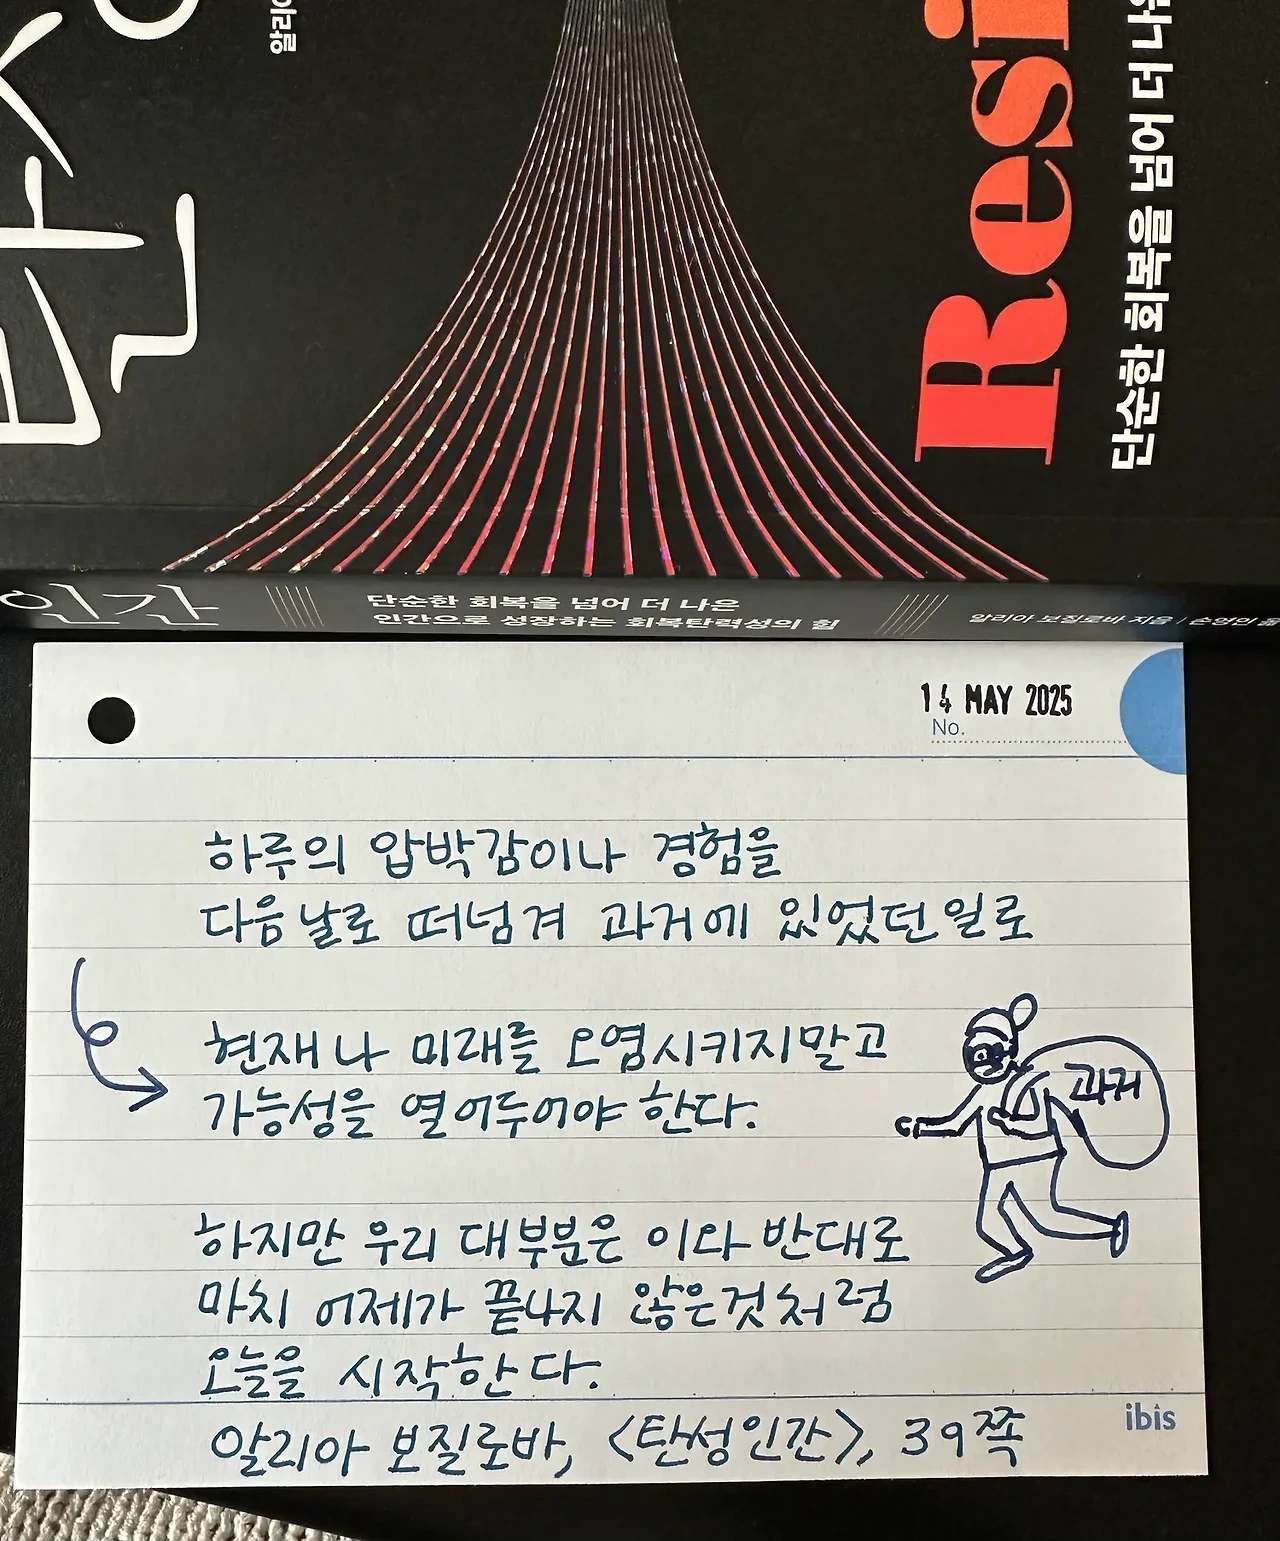 알리아
Resi
단순한 회복을 넘어 더 나은
인간
단순한 회복을 넘어 더 나은
인간으로 성장하는 회복탄력성의 힘
알리아 보질로바 지음 / 손영인 옮
14 MAY 2025
No.
하루의 압박감이나 경험을
다음날로 떠넘겨 과거에 있었던일로
현재나 미래를 오염시키지말고
가능성을 열어두어야 한다.
과거
하지만 우리 대부분은 이와 반대로
마치 어제가 끝나지 않은것처럼
오늘을 시작한다.
알리아 보질로바, <탄성인간>, 39쪽
ibis